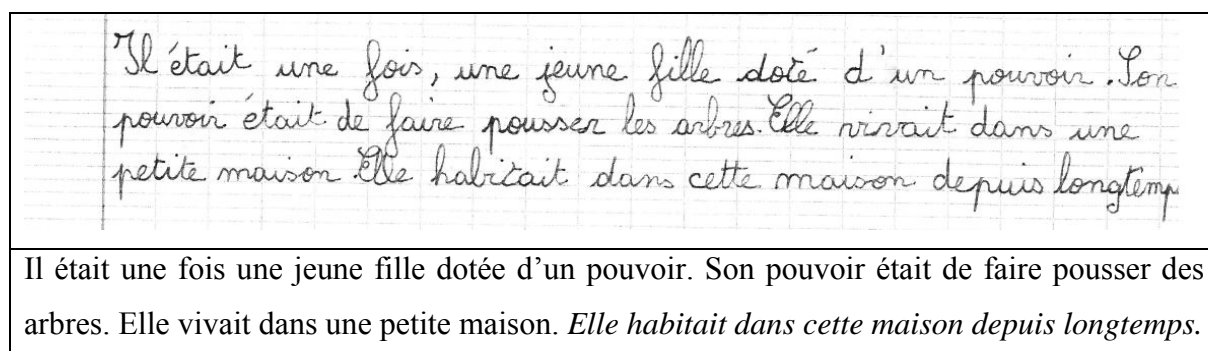 Il était une fois, une jeune fille doté d'un pouvoir. Son
pouvoir était de faire pousser les arbres. Elle vivait dans une
petite maison Elle habitait dans cette maison depuis longtemp
Il était une fois une jeune fille dotée d’un pouvoir. Son pouvoir était de faire pousser des
arbres. Elle vivait dans une petite maison. Elle habitait dans cette maison depuis longtemps.